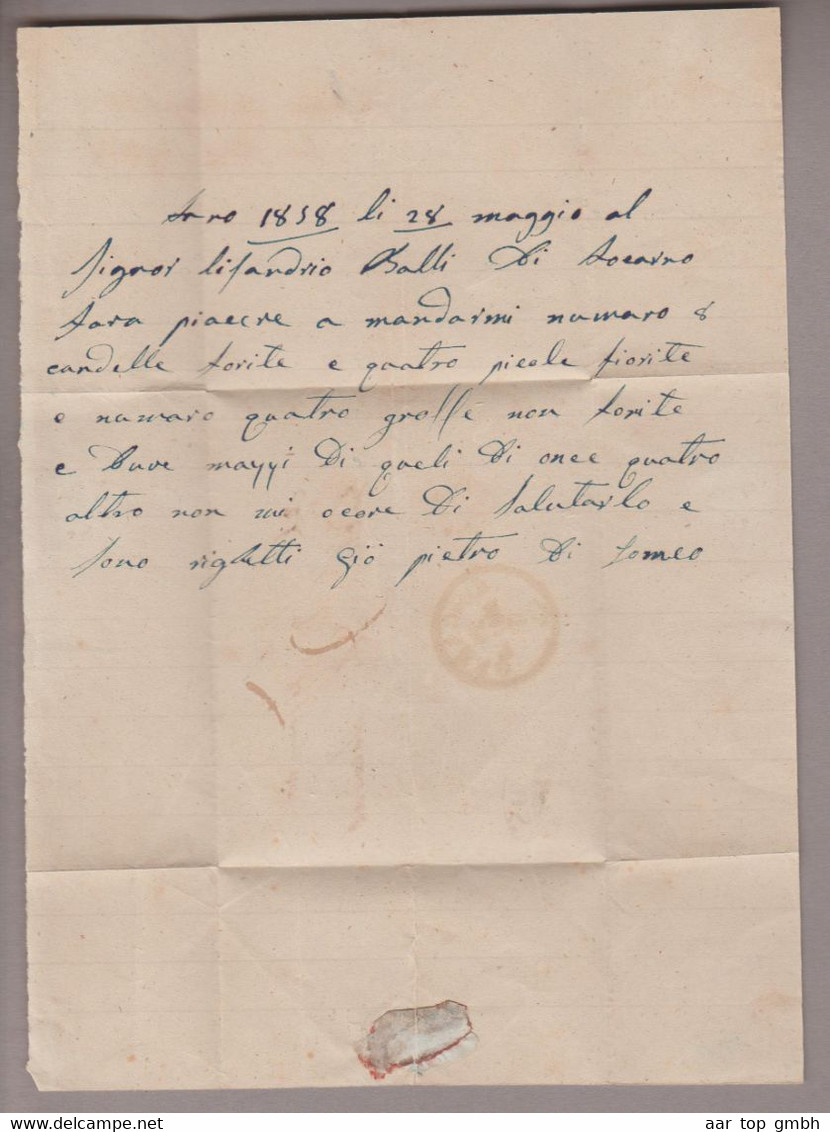 Anno 1858 li 28 maggio al
Signor lisandrio Balli Di Locarno
fara piacere a mandarmi numaro 8
candelle fiorite e quatro picole fiorite
e numaro quatro grosse non fiorite
e Duve mazzi Di queli Di once quatro
altro non mi ocore Di Salutarlo e
Sono righetti Giõ pietro Di Someo
aar top gmbh